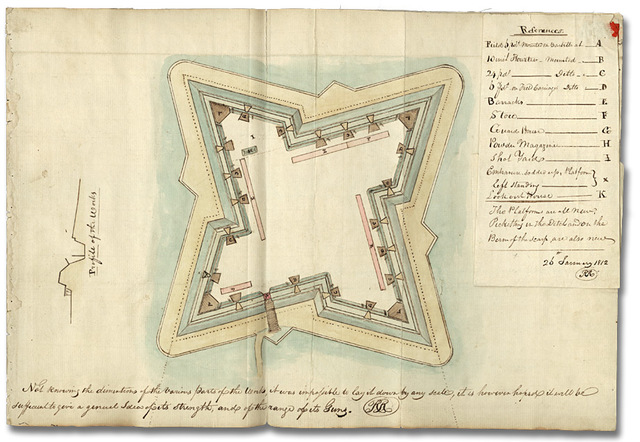 References.
Field 6 pdr Mounted en Barbette at A
10 inch Howitzer - Mounted B
24 pdr Ditto C
6 pdr on Field Carriages Ditto D
Barracks E
Store F
Guard House G
Powder Magazine H
Shot Yards I
Entrance Platform
left standing
Look out House K
The Platforms are all New,
Picketing in the Ditch and on the
Berm of the scarp are also new
26th January 1812
Profile of the Works
Not knowing the dimensions of the various Parts of the Works it was impossible to lay it down by any scale, it is however hoped it will be
sufficient to give a general Idea of its strength, and of the range of its Guns.